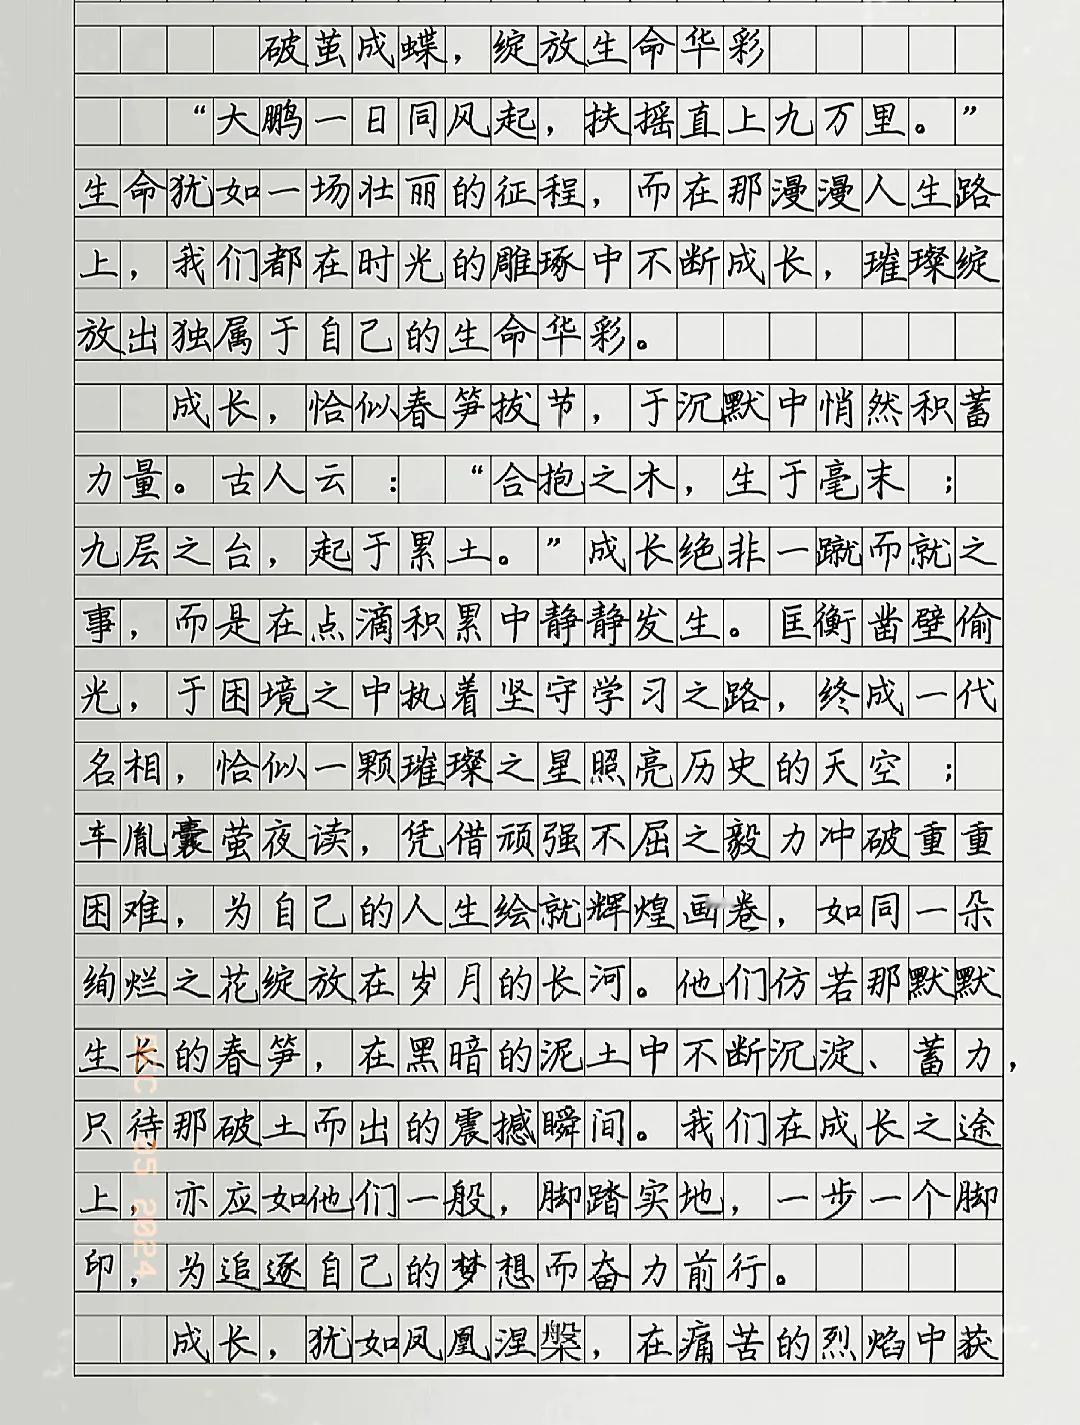 破茧成蝶，绽放生命华彩
“大鹏一日同风起，扶摇直上九万里。”
生命犹如一场壮丽的征程，而在那漫漫人生路
上，我们都在时光的雕琢中不断成长，璀璨绽
放出独属于自己的生命华彩。
成长，恰似春笋拔节，于沉默中悄然积蓄
力量。古人云：“合抱之木，生于毫末；
九层之台，起于累土。”成长绝非一蹴而就之
事，而是在点滴积累中静静发生。匡衡凿壁偷
光，于困境之中执着坚守学习之路，终成一代
名相，恰似一颗璀璨之星照亮历史的天空；
车胤囊萤夜读，凭借顽强不屈之毅力冲破重重
困难，为自己的人生绘就辉煌画卷，如同一朵
绚烂之花绽放在岁月的长河。他们仿若那默默
生长的春笋，在黑暗的泥土中不断沉淀、蓄力，
只待那破土而出的震撼瞬间。我们在成长之途
上，亦应如他们一般，脚踏实地，一步一个脚
印，为追逐自己的梦想而奋力前行。
成长，犹如凤凰涅槃，在痛苦的烈焰中获